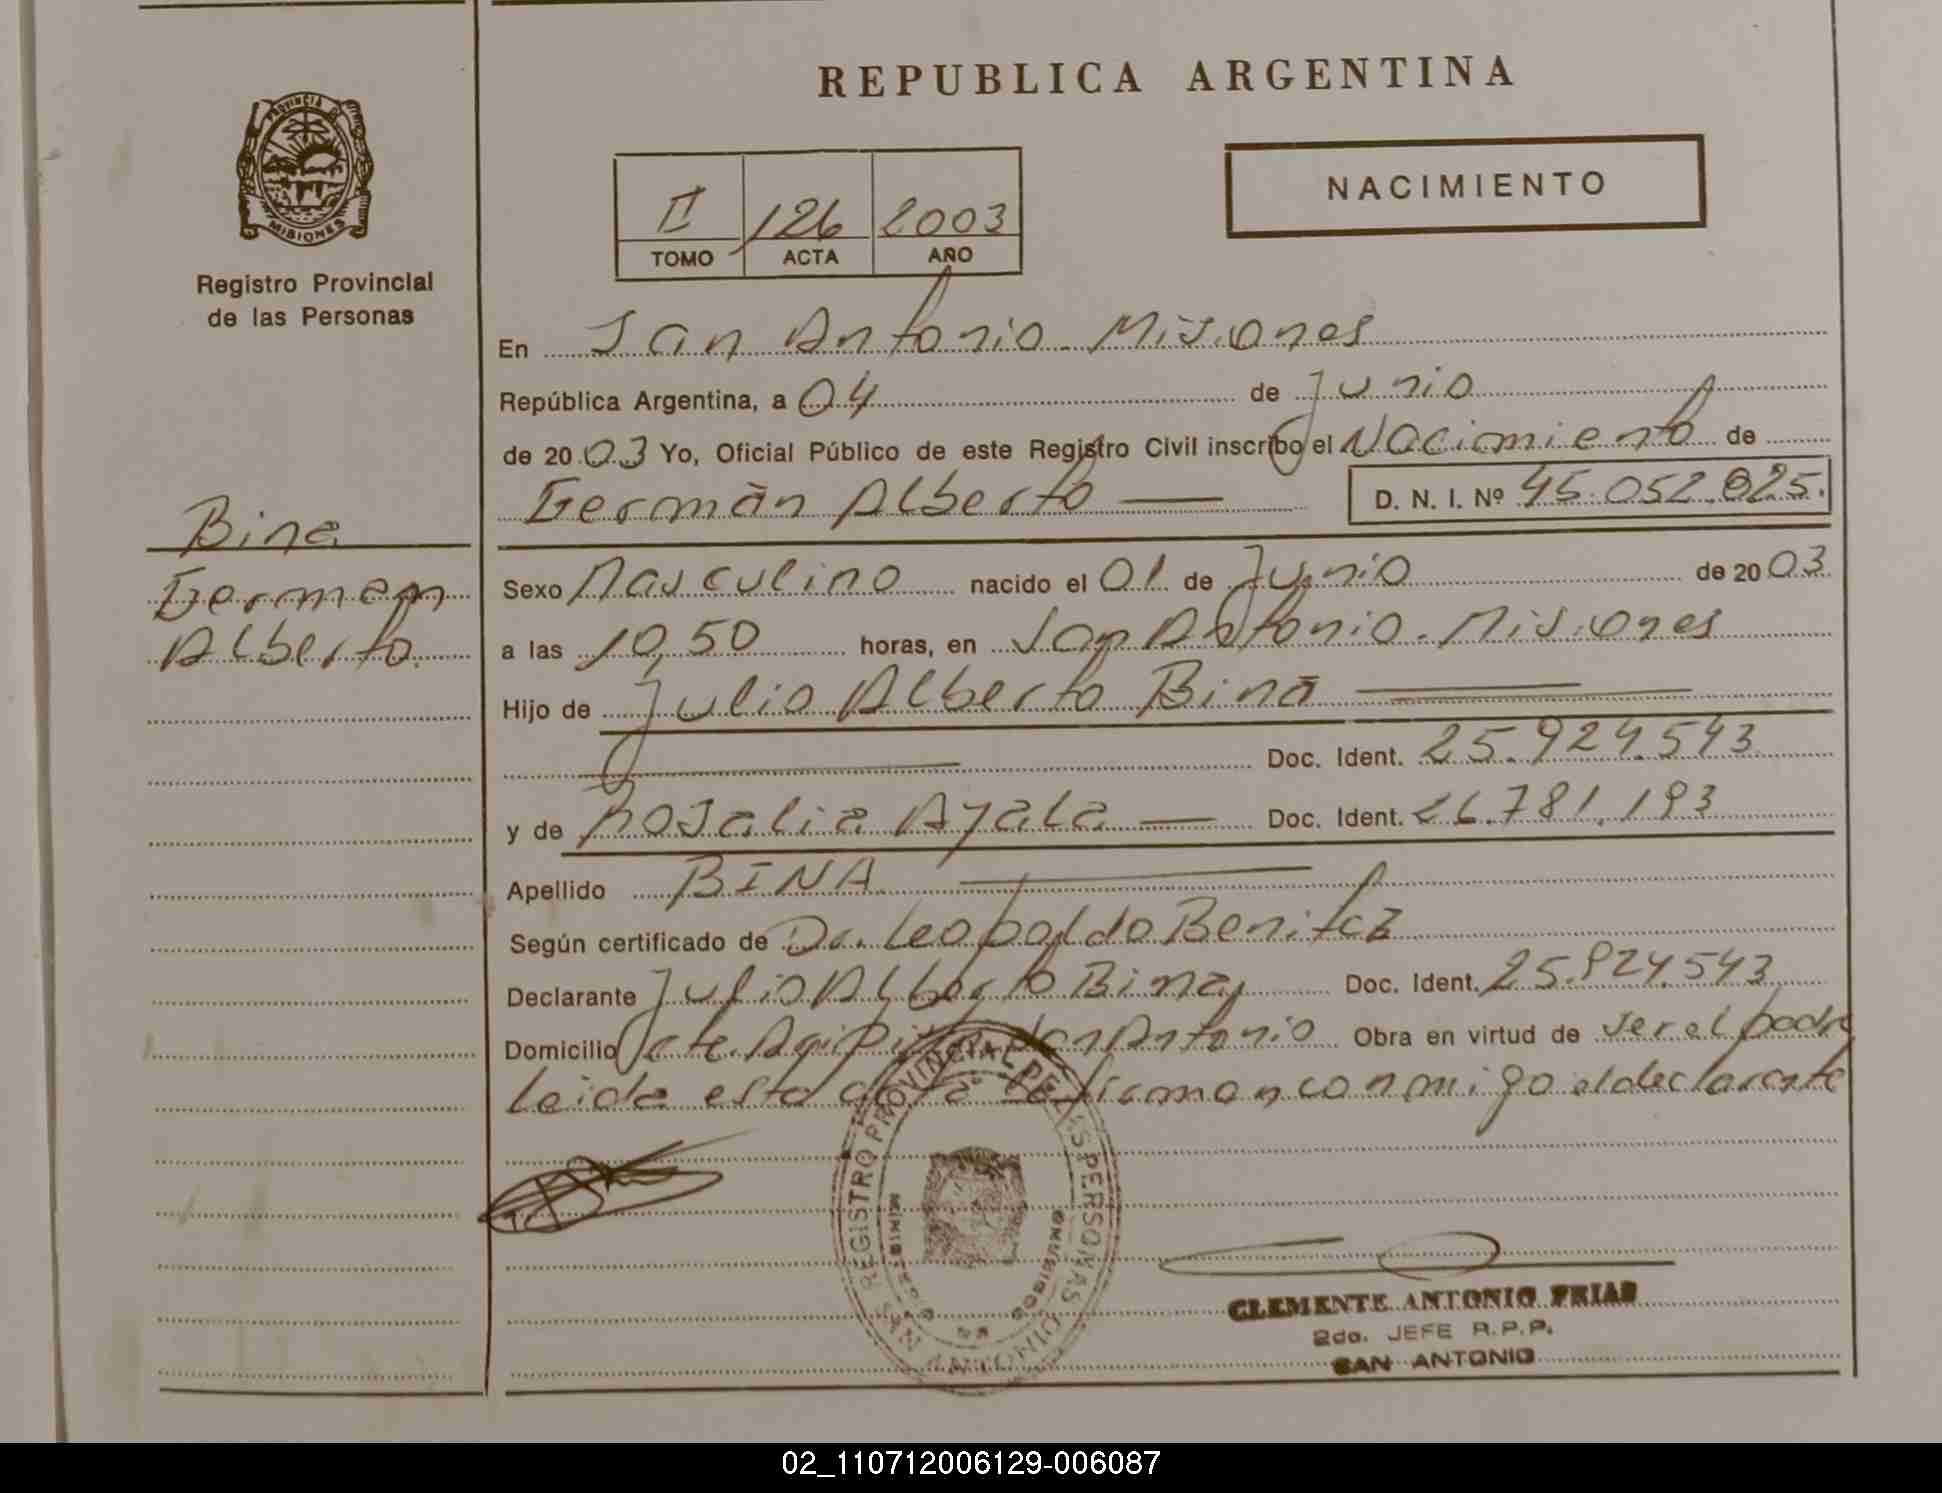 REPUBLICA ARGENTINA
PROVINCIA DE
MISIONES
Registro Provincial
de las Personas
II 126 2003
TOMO ACTA AÑO
NACIMIENTO
En San Antonio - Misiones
República Argentina, a 04 de Junio
de 2003 Yo, Oficial Público de este Registro Civil inscribo el Nacimiento de
Germán Alberto D. N. I. Nº 45.052.825.
Bina
German
Alberto.
Sexo Masculino nacido el 01 de Junio de 2003
a las 10,50 horas, en San Antonio - Misiones
Hijo de Julio Alberto Bina
Doc. Ident. 25.924.543
y de Rosalia Ayala Doc. Ident. 26.781.193
Apellido BINA
Según certificado de Dr. Leopoldo Benitez
Declarante Julio Alberto Bina Doc. Ident. 25.924.543
Domicilio San Antonio Obra en virtud de ser el padre
Leida esta acta la firman conmigo el declarante
REGISTRO PROVINCIAL DE LAS PERSONAS
SAN ANTONIO
CLEMENTE ANTONIO FRIAS
2do. JEFE R.P.P.
SAN ANTONIO
02_110712006129-006087